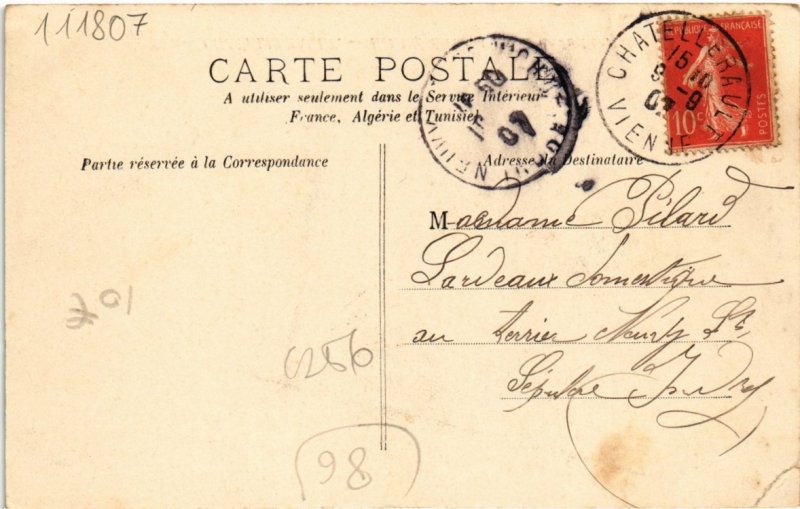 111807
CARTE POSTALE
A utiliser seulement dans le Service Intérieur
France, Algérie et Tunisie
RÉPUBLIQUE FRANÇAISE
10c
POSTES
CHATELLERAULT
15 10
8 - 9
07
VIENNE
07
Partie réservée à la Correspondance
Adresse du Destinataire
Madame Pilard
Lardeaux Domestique
au terrier Neuvy St
Sépulcre Indre
6256
98